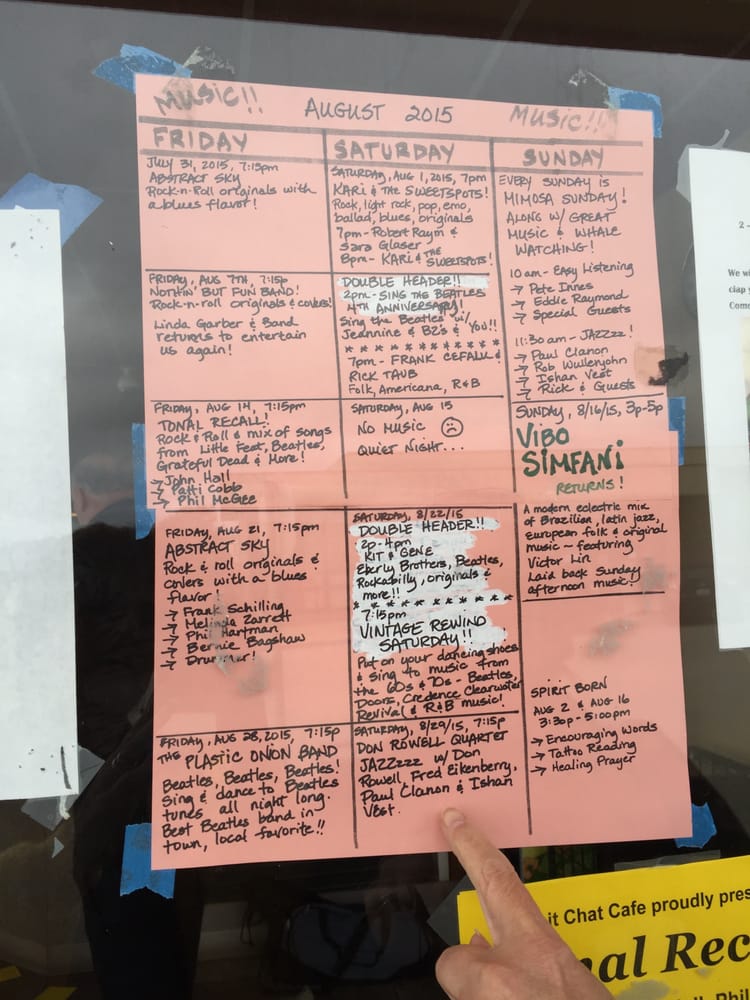 MUSIC!!
AUGUST 2015
MUSIC!!
FRIDAY
JULY 31, 2015, 7:15pm
ABSTRACT SKY
Rock-n-Roll originals with
a blues flavor!
FRIDAY, AUG 7TH, 7:15p
NOTHIN' BUT FUN BAND!
Rock-n-roll originals & covers!
Linda Garber & Band
returns to entertain
us again!
FRIDAY, AUG 14, 7:15pm
TONAL RECALL!
Rock & Roll & mix of songs
from Little Feat, Beatles,
Grateful Dead & More!
→ John Hall
→ Patti Cobb
→ Phil McGee
FRIDAY, AUG 21, 7:15pm
ABSTRACT SKY
Rock & roll originals &
covers with a blues
flavor!
→ Frank Schilling
→ Melinda Zarrett
→ Phil Hartman
→ Bernie Bagshaw
→ Drummer!
FRIDAY, AUG 28, 2015, 7:15p
THE PLASTIC ONION BAND
Beatles, Beatles, Beatles!
Sing & dance to Beatles
tunes all night long.
Best Beatles band in
town, local favorite!!
SATURDAY
SATURDAY, AUG 1, 2015, 7pm
KARI & THE SWEETSPOTS!
Rock, light rock, pop, emo,
ballad, blues, originals
7pm - Robert Raym &
Sara Glaser
8pm - KARI & THE SWEETSPOTS!
DOUBLE HEADER!!
2pm - SING THE BEATLES
4TH ANNIVERSARY!
Sing the Beatles w/
Jeannine & B2's & You!!
* * * * * * * * * * * *
7pm - FRANK CEFALU &
RICK TAUB
Folk, Americana, R&B
SATURDAY, AUG 15
NO MUSIC ☹
QUIET NIGHT...
SATURDAY, 8/22/15
DOUBLE HEADER!!
2p-4pm
KIT & GENE
Eberly Brothers, Beatles,
Rockabilly, originals &
more!!
* * * * * * * * * * * *
7:15pm
VINTAGE REWIND
SATURDAY!!
Put on your dancing shoes
& sing to music from
the 60s & 70s - Beatles,
Doors, Credence Clearwater
Revival & R&B music!
SATURDAY, 8/29/15, 7:15p
DON ROWELL QUARTET
JAZZzzz w/ Don
Rowell, Fred Eikenberry,
Paul Clanon & Ishan
Vest.
SUNDAY
EVERY SUNDAY is
MIMOSA SUNDAY!
ALONG W/ GREAT
MUSIC & WHALE
WATCHING!
10am - Easy Listening
→ Pete Innes
→ Eddie Raymond
→ Special Guests
11:30 am - JAZZzz!
→ Paul Clanon
→ Rob Wullenjohn
→ Ishan Vest
→ Rick & Guests
SUNDAY, 8/16/15, 3p-5p
VIBO
SIMFANI
RETURNS!
A modern eclectric mix
of Brazilian, latin jazz,
European folk & original
music ~ featuring
Victor Lin
Laid back Sunday
afternoon music!
SPIRIT BORN
AUG 2 & AUG 16
3:30p - 5:00pm
→ Encouraging Words
→ Tattoo Reading
→ Healing Prayer
2 -
We wi
clap y
Com
it Chat Cafe proudly pres
nal Rec